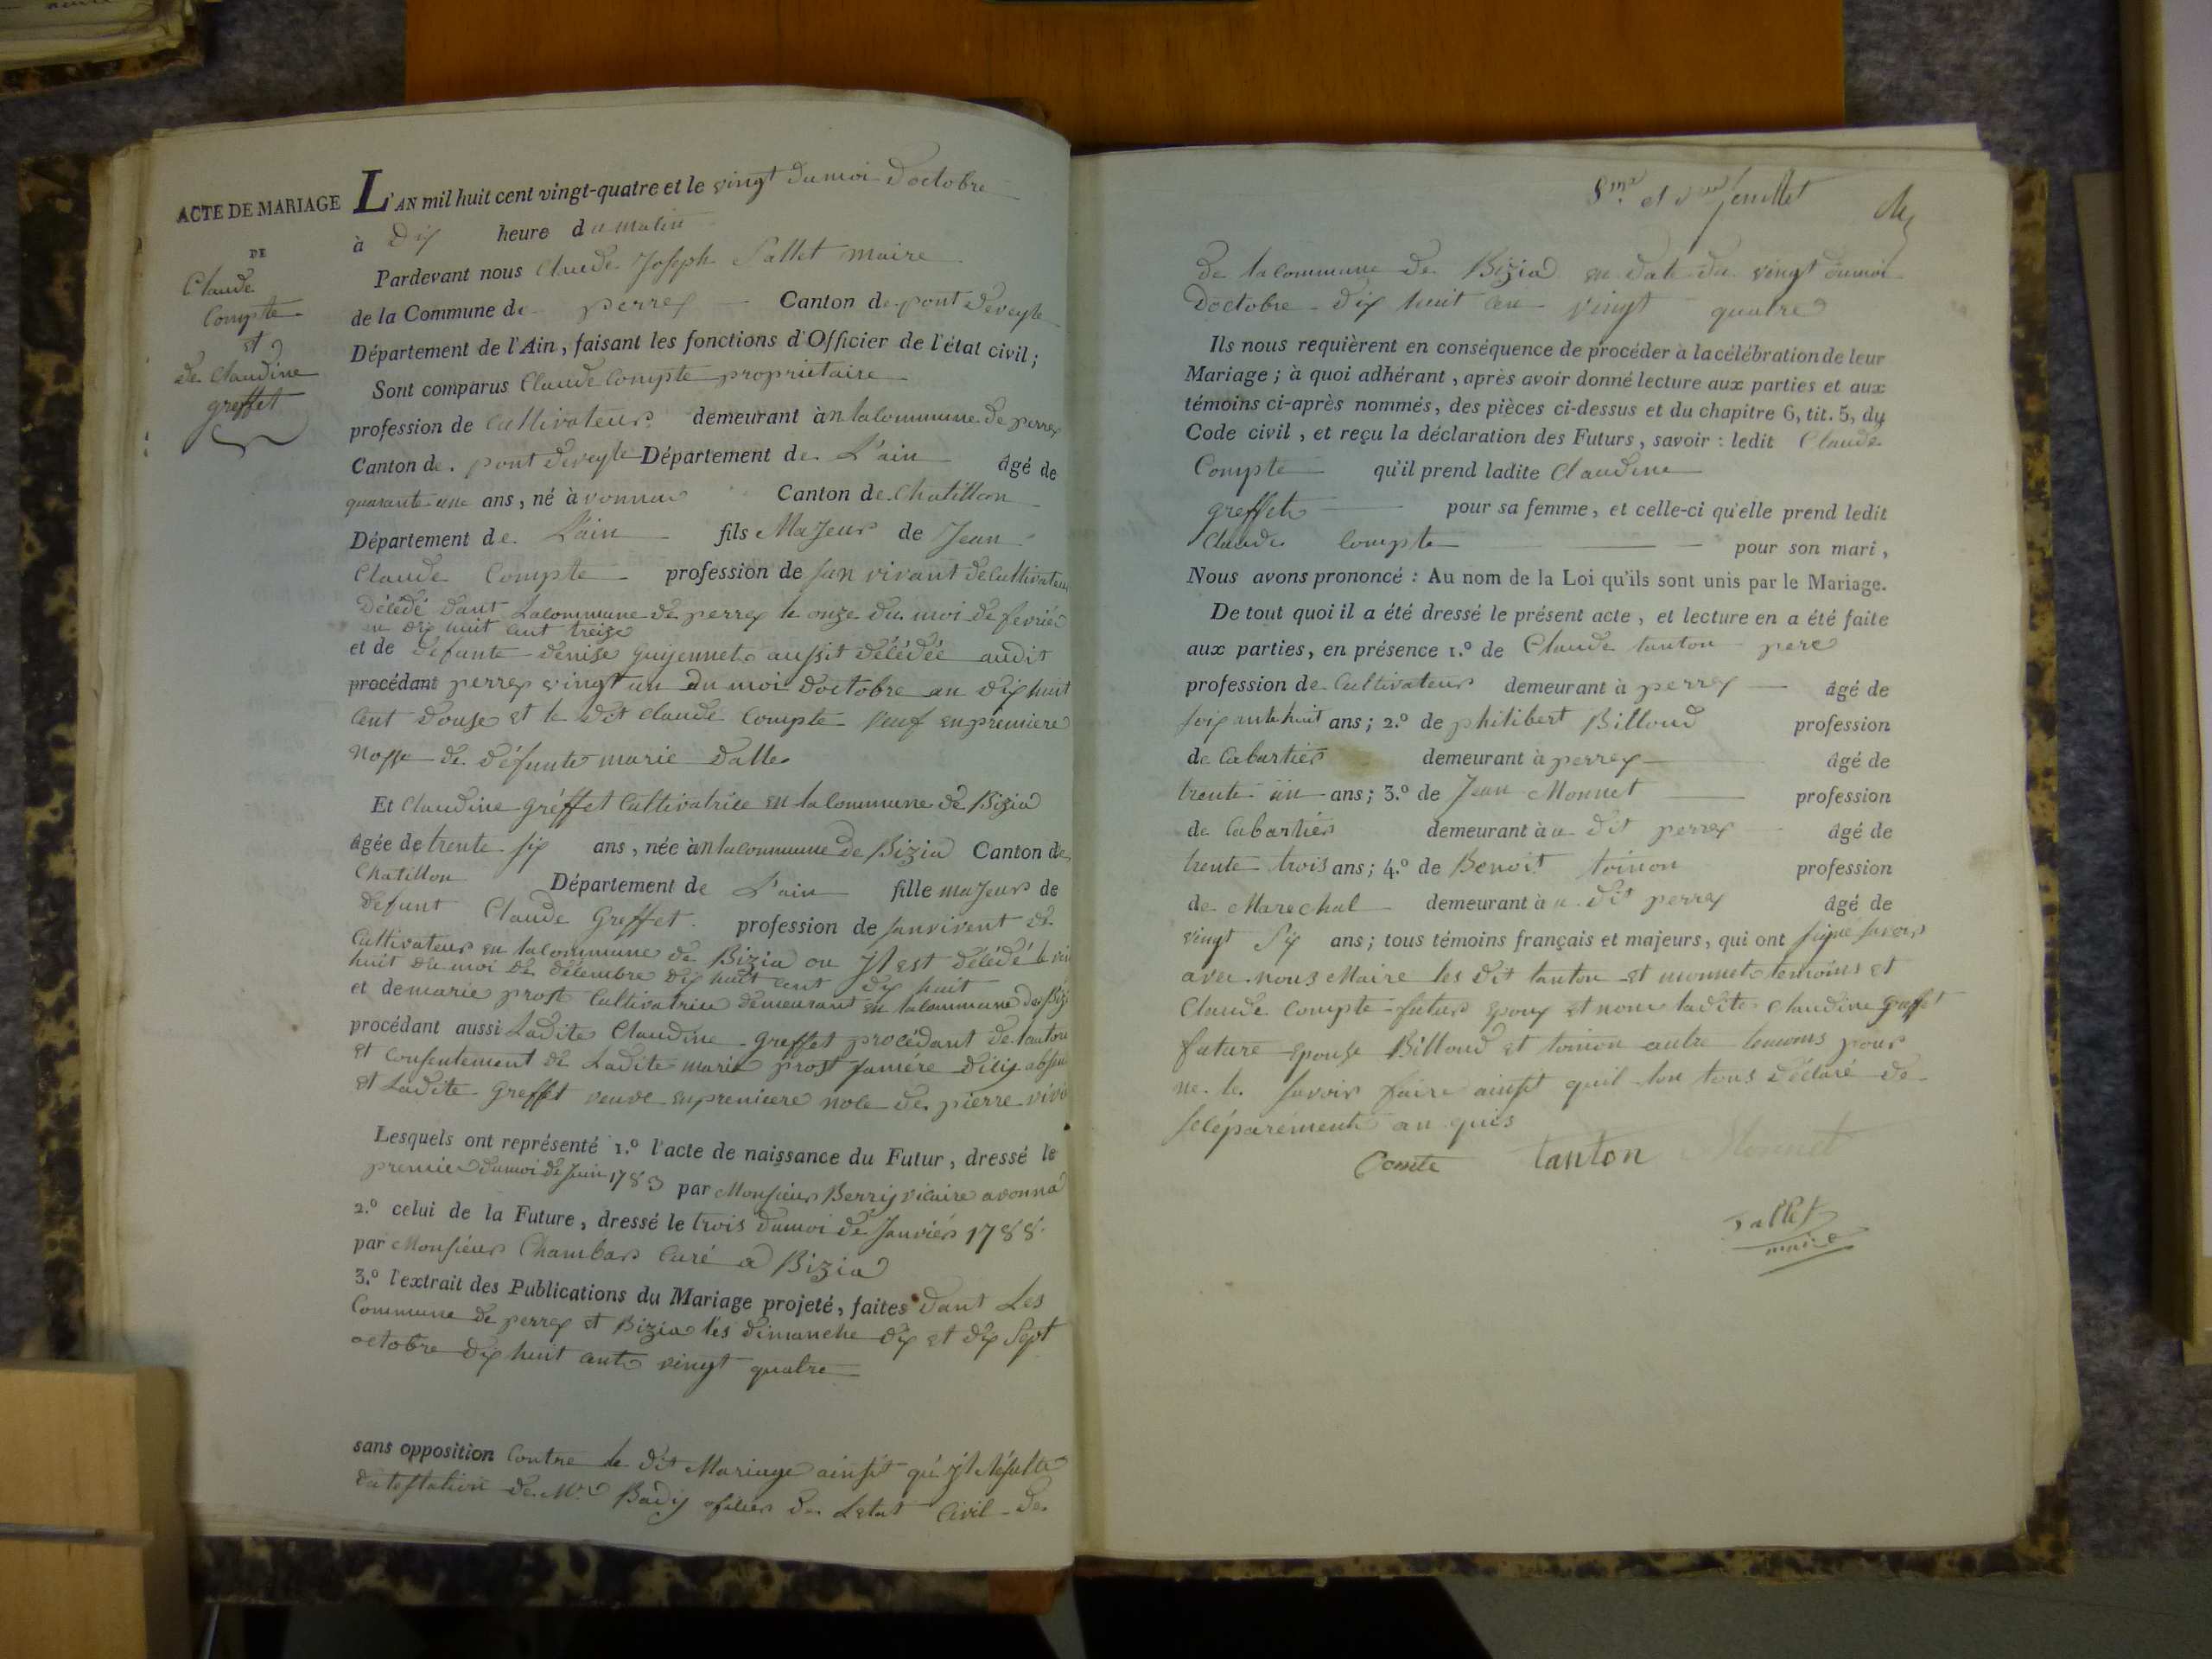 ACTE DE MARIAGE
DE
Claude
Compte
et
de Claudine
greffet
L'AN mil huit cent vingt-quatre et le vingt du moi Doctobre
à Dix heure du matin
Pardevant nous Claude Joseph Pallet maire
de la Commune de perrex Canton de pont deveyle
Département de l'Ain, faisant les fonctions d'Officier de l'état civil;
Sont comparus Claude Compte propriétaire
profession de Cultivateur demeurant àn la Commune de perrex
Canton de pont deveyle Département de L'ain âgé de
quarante une ans, né à vonnas Canton de Chatillon
Département de L'ain fils Majeur de Jean
Claude Compte profession de san vivant de Cultivateur
Délédé dant La Commune de perrex le onze du moi de fevrier
an dix huit cent treize
et de défunte denise guyennet aussit délédée audit
procédant perrex vingt un du moi doctobre an dix huit
cent douse et le dit Claude Compte veuf en premiere
nosse de défunte marie Dalle
Et Claudine gréffet Cultivatrice en la Commune de Bizia
âgée de trente six ans, née àn la commune de Bizia Canton de
Chatillon Département de L'ain fille majeur de
defunt Claude Greffet profession de sanvivent de
Cultivateur en la Commune de Bizia ou jl est délédé le
huit du moi de délembre dix huit cent dix huit
et de marie prost Cultivatrice demeurant en la Commune de
procédant aussi Ladite Claudine greffet procédant de
et Consentement de Ladite marie prost samére Dicij
et Ladite Greffet veuve en premiere noce de pierre
Lesquels ont représenté 1.° l'acte de naissance du Futur, dressé le
premier du moi de juin 1783 par Monsieur Berrij vicaire avonna
2.° celui de la Future, dressé le trois du moi de Janvier 1788
par Monsieur Chambar Curé a Bizia
3.° l'extrait des Publications du Mariage projeté, faites dant Les
Commune de perrex et Bizia les dimanche dix et dix sept
octobre dix huit cent vingt quatre
sans opposition Contre le dit Mariage ainsit qué jl résulte
datestation de Mr Badij ofilier de Letat Civil de
8me et feuillet
de la commune de Bizia en date du vingt du moi
Doctobre dix huit cen vingt quatre
Ils nous requièrent en conséquence de procéder à la célébration de leur
Mariage; à quoi adhérant, après avoir donné lecture aux parties et aux
témoins ci-après nommés, des pièces ci-dessus et du chapitre 6, tit. 5, du
Code civil, et reçu la déclaration des Futurs, savoir: ledit Claude
Compte qu'il prend ladite Claudine
greffet pour sa femme, et celle-ci qu'elle prend ledit
Claude Compte pour son mari,
Nous avons prononcé: Au nom de la Loi qu'ils sont unis par le Mariage.
De tout quoi il a été dressé le présent acte, et lecture en a été faite
aux parties, en présence 1.° de Claude tanton pere
profession de Cultivateur demeurant à perrex âgé de
soixante huit ans; 2.° de philibert Billoud profession
de Cabartier demeurant à perrex âgé de
trente un ans; 3.° de Jean Monnet profession
de Cabartier demeurant àu dit perrex âgé de
trente trois ans; 4.° de Benoit toinon profession
de Marechal demeurant àu dit perrex âgé de
vingt six ans; tous témoins français et majeurs, qui ont signé savoir
avec nous Maire les dit tanton et monnet temoins et
Claude Compte futur epoux et nom ladite Claudine greffet
future epouse Billoud et toinon autre temoins pour
ne le savoir faire ainsit quil lon tous déclaré de
seléparément an quis
Comte tanton Monnet
Pallet
maire